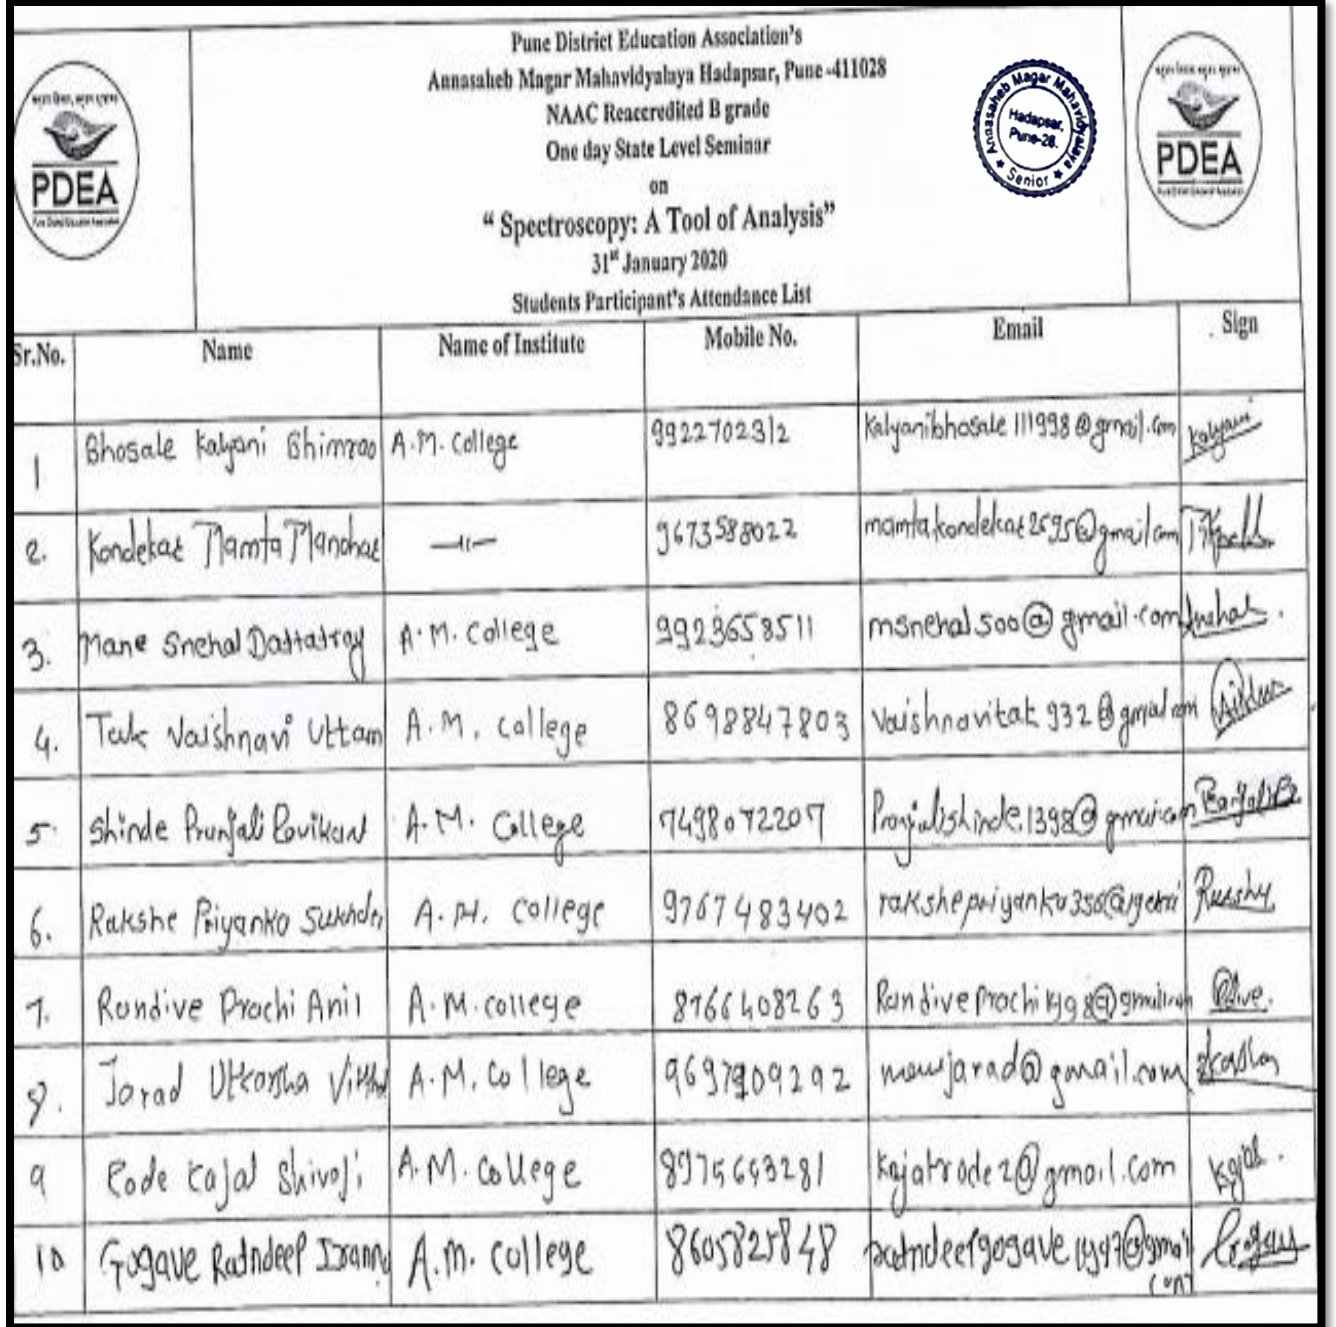 Pune District Education Association's
Annasaheb Magar Mahavidyalaya Hadapsar, Pune-411028
NAAC Reaccredited B grade
One day State Level Seminar
on
“ Spectroscopy: A Tool of Analysis”
31st January 2020
Students Participant's Attendance List
PDEA
Annasaheb Magar Mahavidyalaya
Hadapsar,
Pune-28.
★ Senior ★
PDEA
Sr.No. Name Name of Institute Mobile No. Email Sign
1 Bhosale Kalyani Bhimrao A.M. College 9922702312 Kalyanibhosale111998@gmail.com Kalyani
2. Kondekar Mamta Manohar —11— 9673588022 mamtakondekar2595@gmail.com
3. Mane Snehal Dattatray A.M. College 9923658511 msnehal500@gmail.com Snehal.
4. Tak Vaishnavi Uttam A.M. College 8698847803 Vaishnavitak932@gmail.com
5. Shinde Pranjali Ravikant A.M. College 7498072207 Pranjalishinde1398@gmail.com
6. Rakshe Priyanka A.M. College 9767483402
7. Randive Prachi Anil A.M. College 8766408263
8. Jarad Utkarsha Vitthal A.M. College mewjarad@gmail.com
9 Rode Kajal Shivaji A.M. College 8975693281 Kajalrode2@gmail.com Kajal.
10 Gogave Ratndeep A.M. College 8605825848 ratndeepgogave1997@gmail
com